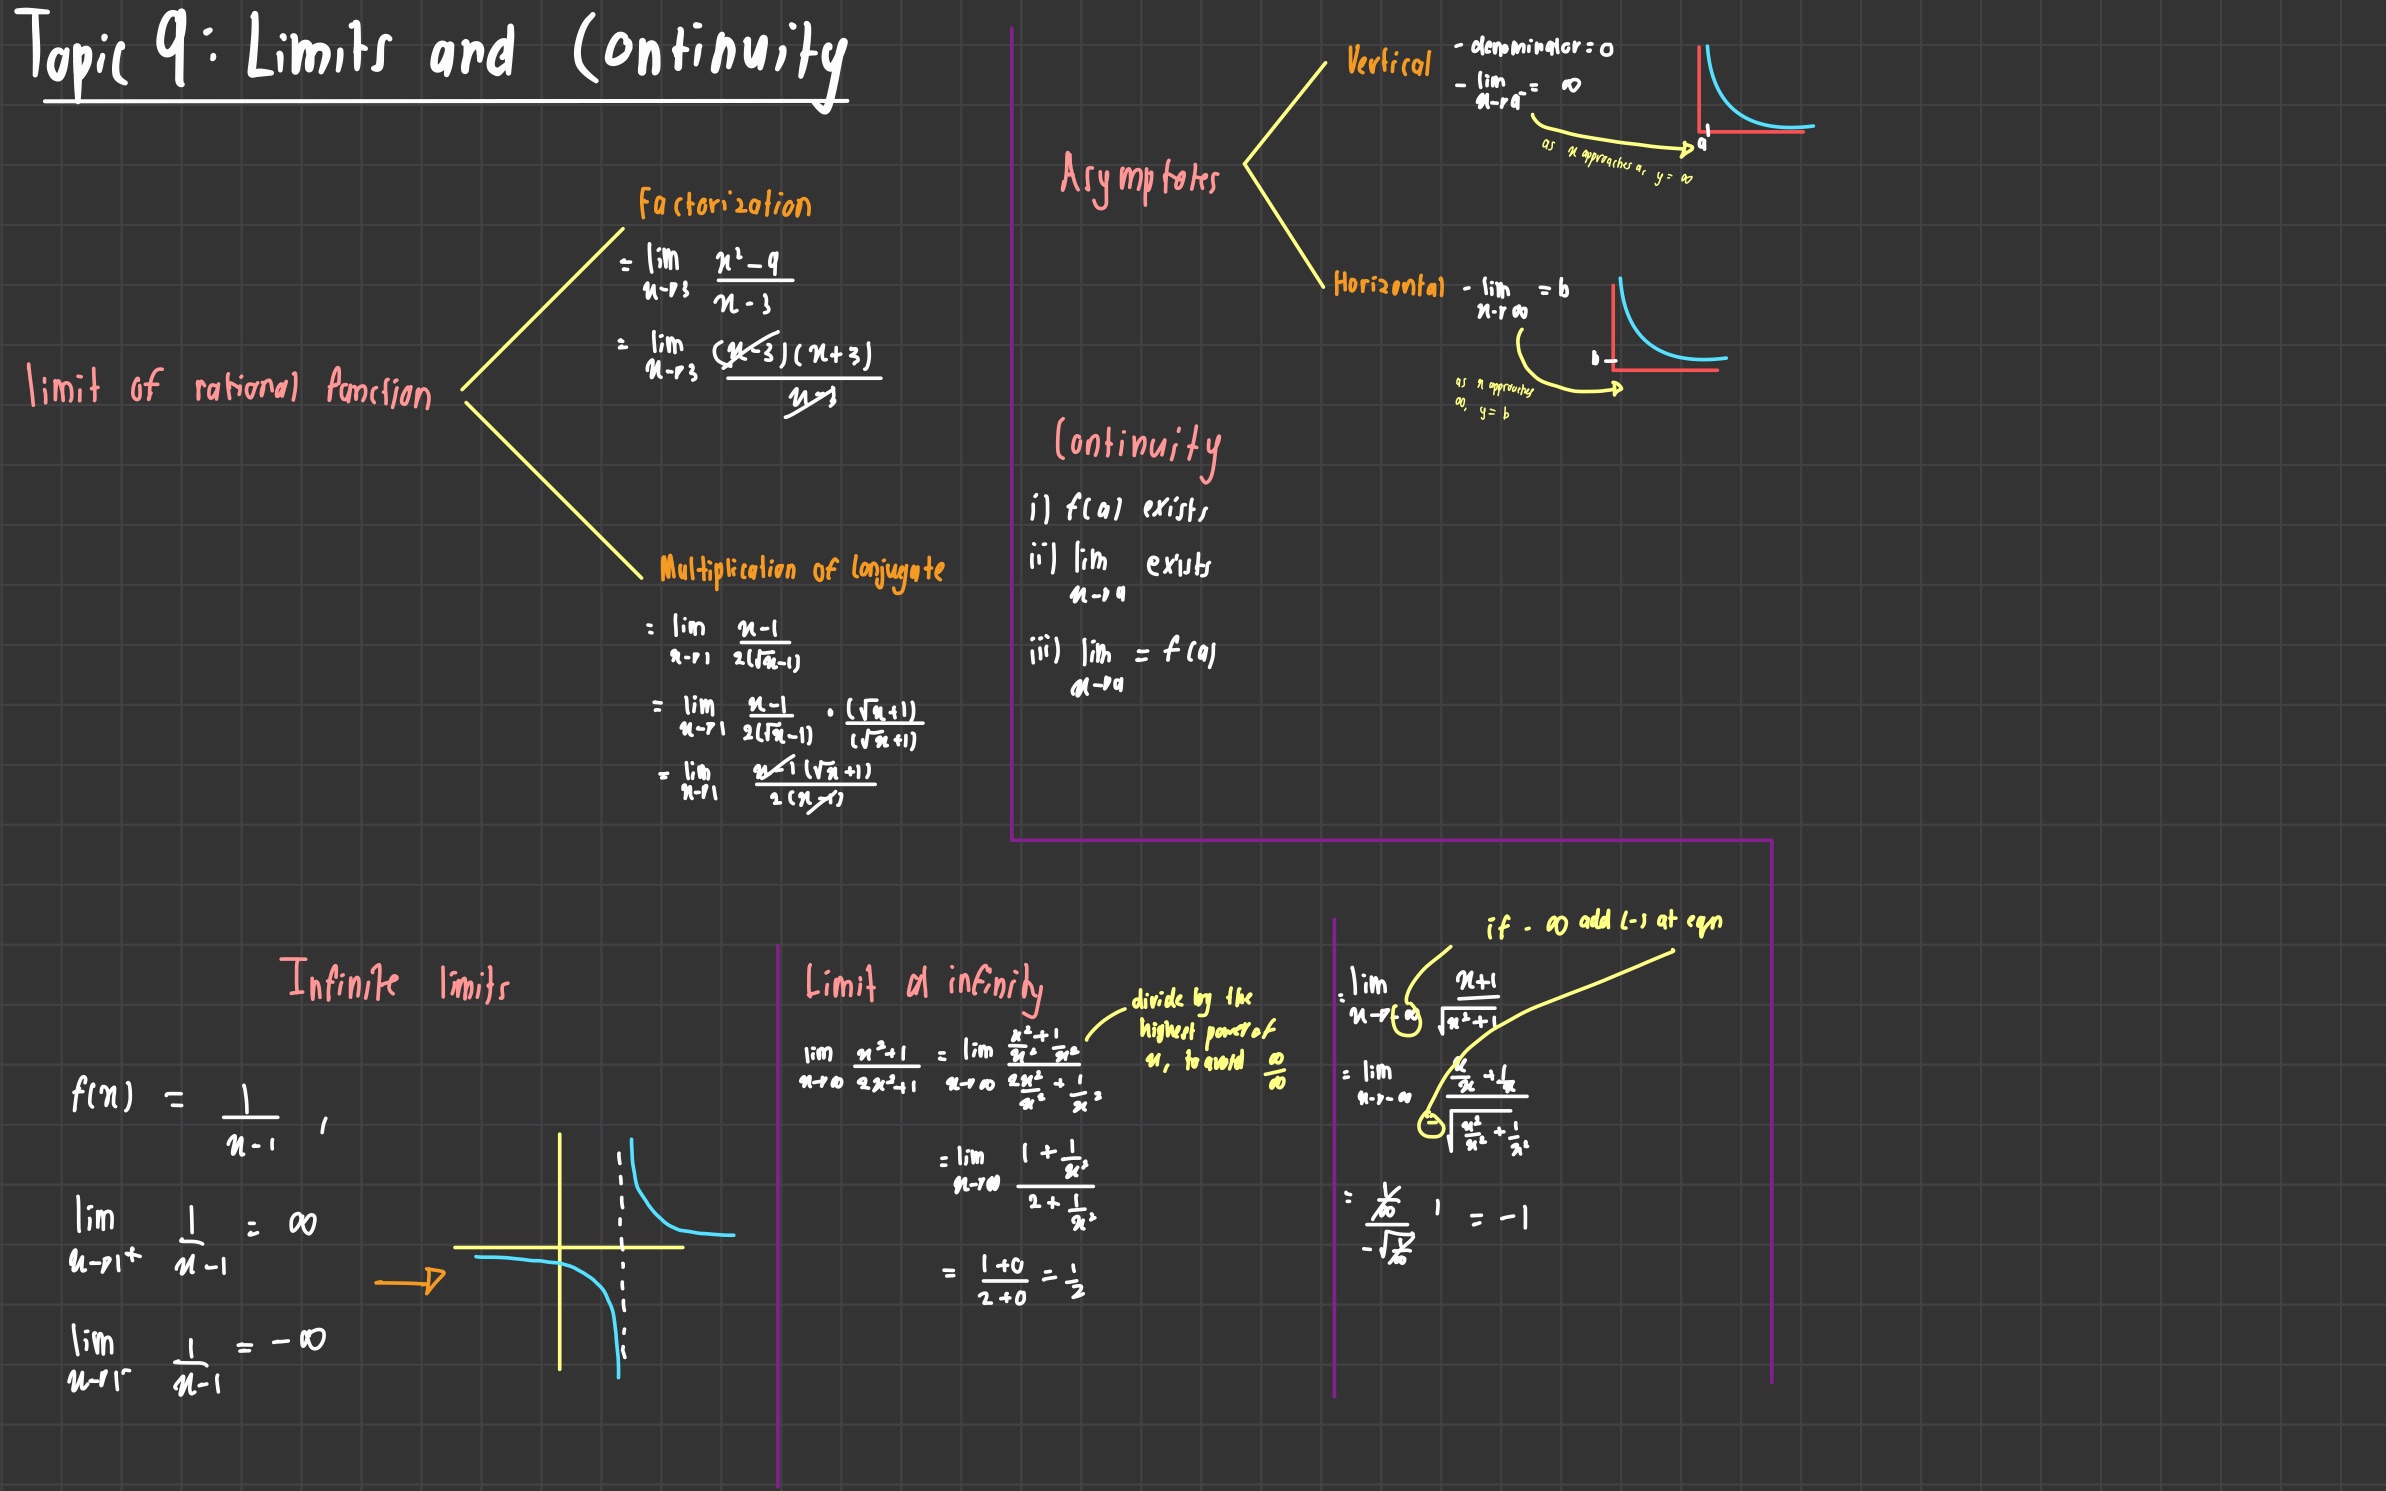 Topic 9: Limits and Continuity
limit of rational function
Factorization
= lim x→3 (x² - 9)/(x - 3)
= lim x→3 (x-3)(x+3)/(x-3)
Multiplication of conjugate
= lim x→1 (x-1)/(2(√x-1))
= lim x→1 (x-1)/(2(√x-1)) · (√x+1)/(√x+1)
= lim x→1 x-1(√x+1)/(2(x-1))
Asymptotes
Vertical
- denominator = 0
- lim x→a⁻ = ∞
as x approaches a, y = ∞
a
Horizontal
- lim x→∞ = b
as x approaches
∞, y = b
b
Continuity
i) f(a) exists
ii) lim x→a exists
iii) lim x→a = f(a)
Infinite limits
f(x) = 1/(x-1) ,
lim x→1⁺ 1/(x-1) = ∞
lim x→1⁻ 1/(x-1) = -∞
Limit at infinity
divide by the
highest power of
x, to avoid ∞/∞
lim x→∞ (x²+1)/(2x²+1) = lim x→∞ (x²/x² + 1/x²)/(2x²/x² + 1/x²)
= lim x→∞ (1 + 1/x²)/(2 + 1/x²)
= (1+0)/(2+0) = 1/2
if -∞ add (-) at eqn
= lim x→-∞ (x+1)/√(x²+1)
= lim x→-∞ (x/x + 1/x)/(-√(x²/x² + 1/x²))
= -1